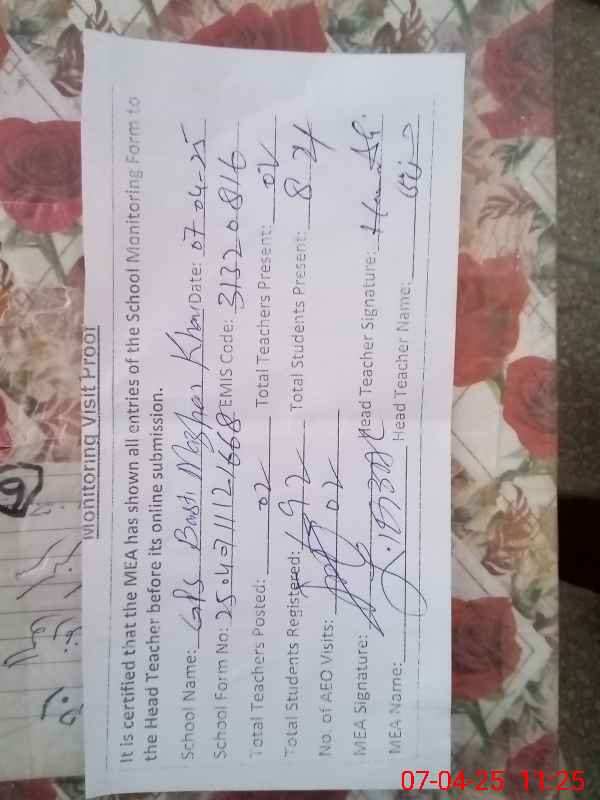 Monitoring Visit Proof
It is certified that the MEA has shown all entries of the School Monitoring Form to
the Head Teacher before its online submission.
School Name: GPS Basti Mazhar Khan Date: 07-04-25
School Form No: EMIS Code: 31320816
Total Teachers Posted: 02 Total Teachers Present: 02
Total Students Registered: 92 Total Students Present: 84
No. of AEO Visits: 02
MEA Signature: Head Teacher Signature:
MEA Name: Head Teacher Name:
07-04-25 11:25